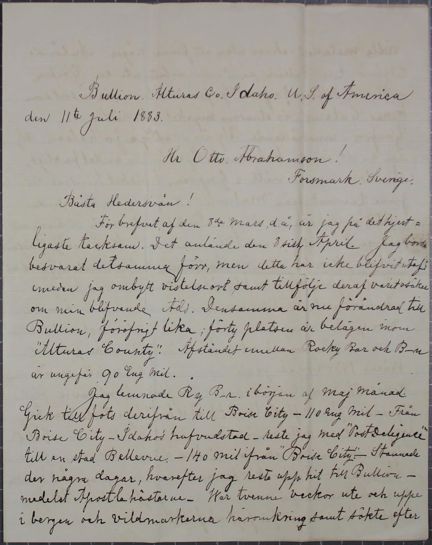 Bullion. Alturas Co. Idaho. U. S. of America
den 11te Juli 1883.
Hr Otto Abrahamson!
Forsmark. Sverige.
Bästa Hedersvän!
För brefvet af den 8de mars d. å, är jag på det hjert-
ligaste tacksam. Det anlände den 8 sist. April. Jag borde
besvarat detsamma förr, men detta har icke blifvit utaf
emedan jag ombytt vistelseort samt till följe deraf varit osäker
om min blifvande Ads. Densamma är nu förändrad till
Bullion, för öfrigt lika; förty platsen är belägen inom
"Alturas County". Afståndet emellan Rocky Bar och B-n
är ungefär 90 Eng mil.
Jag lemnade Ry Br. i början af maj månad
Gick till fots derifrån till Boise City - 110 Eng mil - Från
Boise City - Idahos hufvudstad - reste jag med "Post Deligence"
till en stad Bellevue. - 140 mil ifrån Boise City - Stannade
der några dagar, hvarefter jag reste upp hit till Bullion -
medelst Apostlahästarne - War tvenne veckor ute och uppe
i bergen och vildmarkerna häromkring samt sökte efter